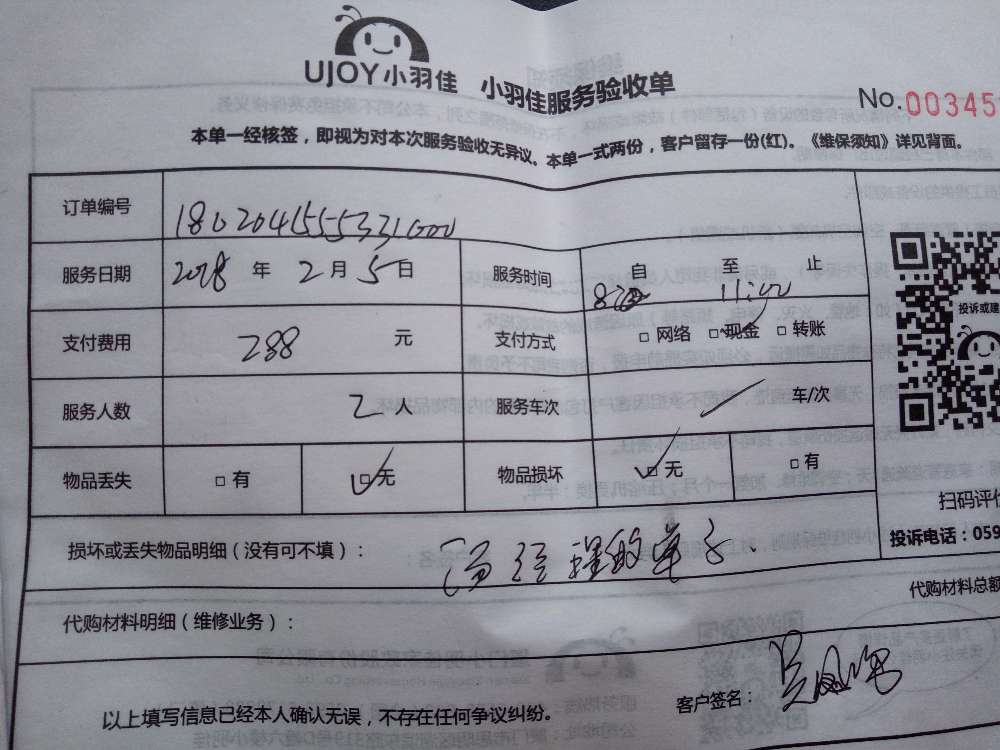 UJOY小羽佳 小羽佳服务验收单
No.00345
本单一经核签，即视为对本次服务验收无异议。本单一式两份，客户留存一份(红)。《维保须知》详见背面。
订单编号
服务日期 2018 年 2 月 5 日 服务时间 自 至 止
支付费用 288 元 支付方式 □ 网络 □ 现金 □ 转账
投诉或建
服务人数 2 人 服务车次 车/次
物品丢失 □ 有 □ 无 物品损坏 □ 无 □ 有
扫码评价
损坏或丢失物品明细（没有可不填）： 经理的单子.
投诉电话：059
代购材料总额
代购材料明细（维修业务）：
以上填写信息已经本人确认无误，不存在任何争议纠纷。 客户签名：